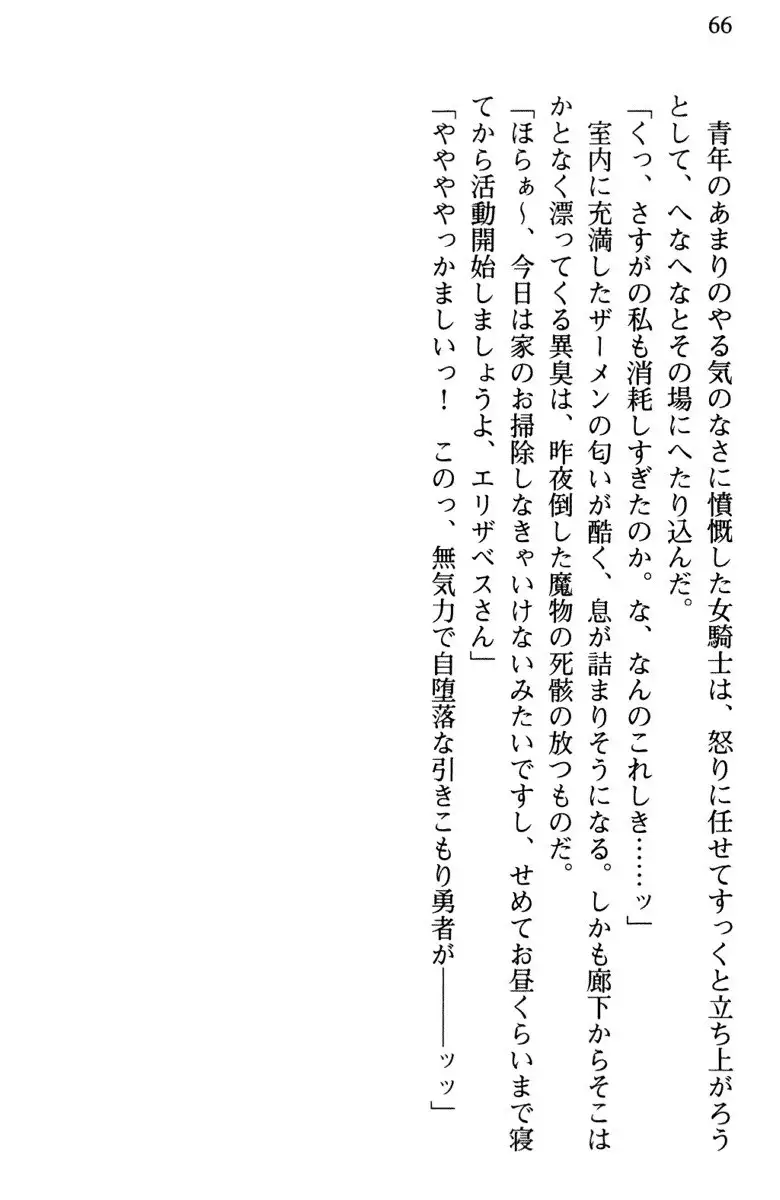 66
青年のあまりのやる気のなさに憤慨した女騎士は、怒りに任せてすっくと立ち上がろう
として、へなへなとその場にへたり込んだ。
「くっ、さすがの私も消耗しすぎたのか。な、なんのこれしき……ッ」
室内に充満したザーメンの匂いが酷く、息が詰まりそうになる。しかも廊下からそこは
かとなく漂ってくる異臭は、昨夜倒した魔物の死骸の放つものだ。
「ほらぁ〜、今日は家のお掃除しなきゃいけないみたいですし、せめてお昼くらいまで寝
てから活動開始しましょうよ、エリザベスさん」
「やややややっかましいっ！　このっ、無気力で自堕落な引きこもり勇者が―――ッッ」